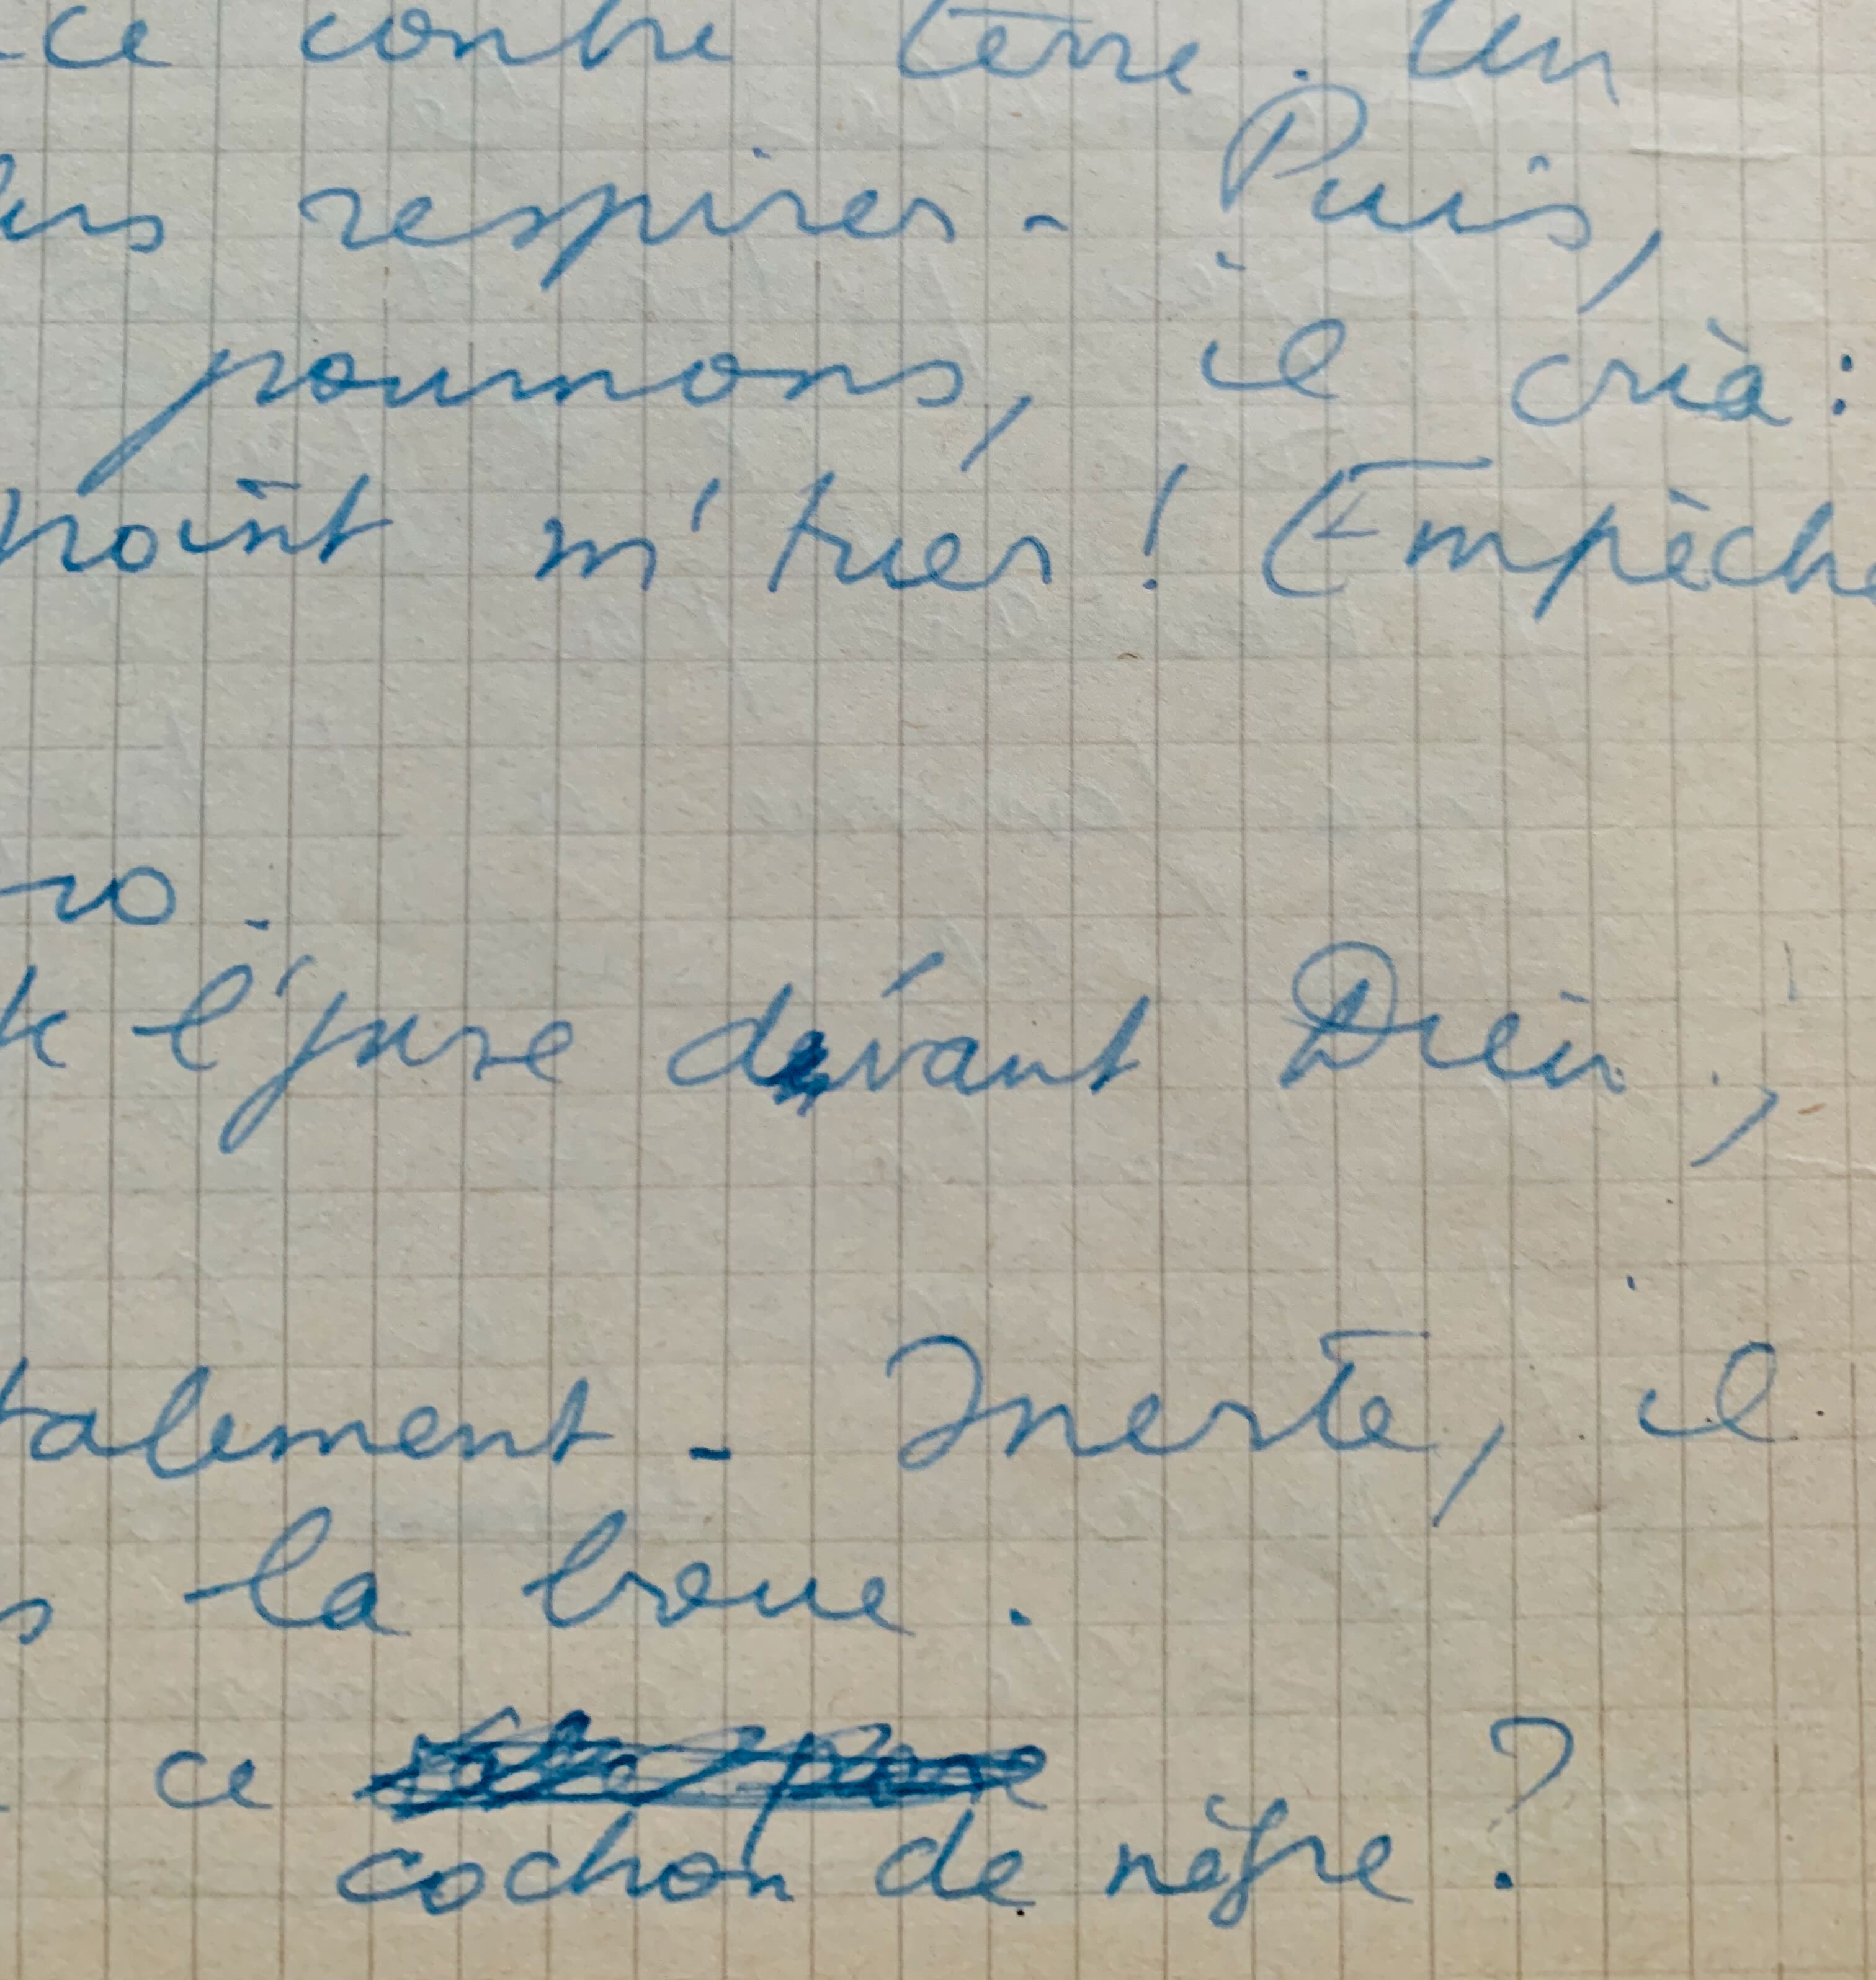 ce contre terre. Un
respirer. Puis,
poumons, il cria :
point m'tuer ! Empêche
ro.
l'jure devant Dieu,
talement. Inerte, il
s la boue.
ce
cochon de nègre ?